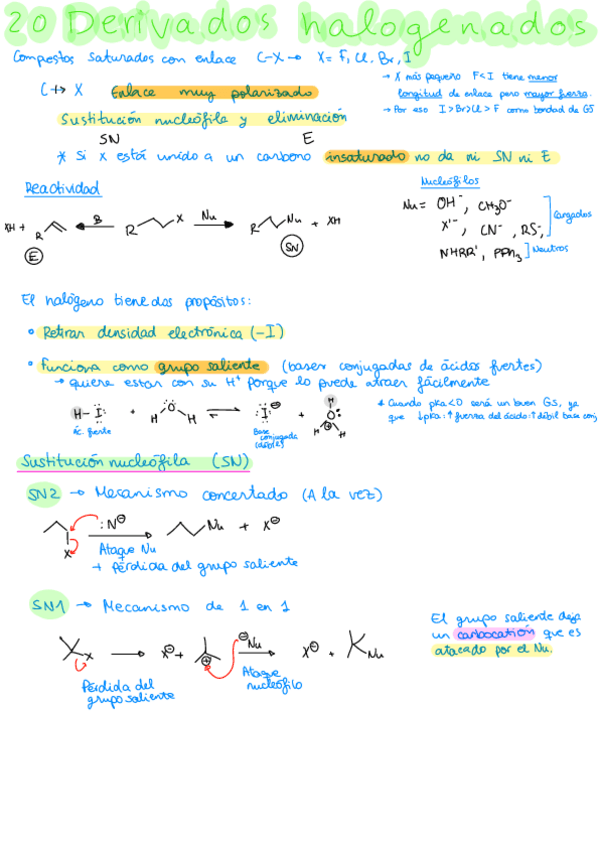 20 Derivados halogenados
Compostos saturados con enlace C-X → X= F, Cl, Br, I
→ X más pequeño F<I tiene menor
longitud de enlace pero mayor fuerza.
→ Por eso I>Br>Cl>F como bondad de GS
C X Enlace muy polarizado
Sustitución nucleófila y eliminación
SN E
* Si X está unido a un carbono insaturado no da ni SN ni E
Reactividad
Nucleófilos
Nu = OH⁻, CH₃O⁻
X⁻, CN⁻, RS⁻,
Cargados
NHRR', PPh₃ Neutros
XH + R B R X Nu R Nu + XH
E SN
El halógeno tiene dos propósitos:
• Retirar densidad electrónica (-I)
• Funciona como grupo saliente (bases conjugadas de ácidos fuertes)
→ quiere estar con su H⁺ porque lo puede atraer fácilmente
* Cuando pKa<0 será un buen GS, ya
que ↓pKa:↑fuerza del ácido:↑débil base conj
H-I: + H O H ⇌ :I:⊖ + H O H H ⊕
Ác. fuerte
Base conjugada (débil)
Sustitución nucleófila (SN)
SN2 → Mecanismo concertado (A la vez)
X :N⊖ → Nu + X⊖
Ataque Nu
+ Pérdida del grupo saliente
SN1 → Mecanismo de 1 en 1
El grupo saliente deja
un carbocatión que es
atacado por el Nu.
X → X⊖ + ⊕ ⊖Nu → X⊖ + Nu
Pérdida del
grupo saliente
Ataque
nucleófilo